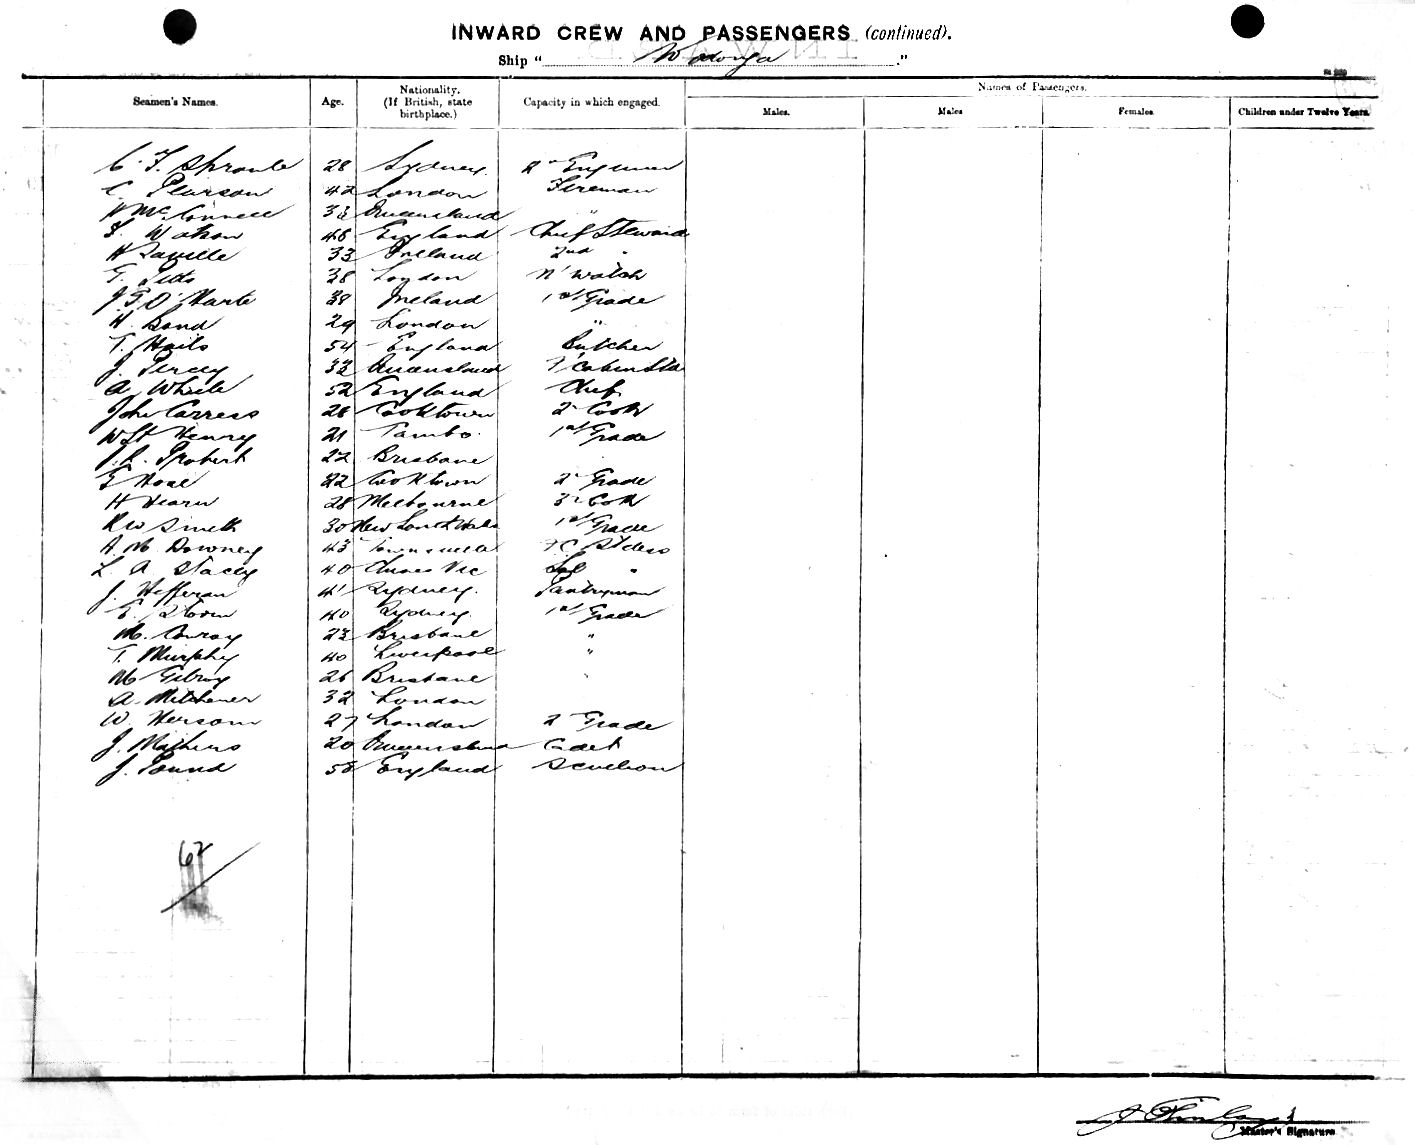 INWARD CREW AND PASSENGERS (continued).
Ship " Wodonga ."
Seamen's Names. Age. Nationality. (If British, state birthplace.) Capacity in which engaged. Names of Passengers.
Males. Males Females Children under Twelve Years.
C. F. Sproule 28 Sydney. 2nd Engineer
C. Pearson 42 London Fireman
McConnell 33 Queensland "
Watson 48 England Chief Steward
H Saville 33 Ireland 2nd "
T. Pitts 38 London N' Watch
J. T. O'Harte 38 Ireland 1st Grade
H. Bond 29 London "
T. Hails 54 England Butcher
J. Percy 33 Queensland
A. White 52 England Chef
John Carress 28 Cooktown 2nd Cook
W St Henry 21 Tambo. 1st Grade
Probert 22 Brisbane
Rose 22 Cooktown 2nd Grade
H Hearn 28 Melbourne 3rd Cook
R W Smith 30 New South Wales 1st Grade
A. M. Downey 43 Townsville Stdess
L. A Stacey 40 Vic "
J. Heffernan 41 Sydney. Pantryman
E. Storm 40 Sydney. 1st Grade
M. Conroy 23 Brisbane "
T. Murphy 40 Liverpool "
M Gilroy 26 Brisbane "
A. Mitchener 32 London
W. Hersom 27 London 2 Grade
J. Mathews 20 Queensland Cadet
J. Pound 58 England Scullion
62
Master's Signature.